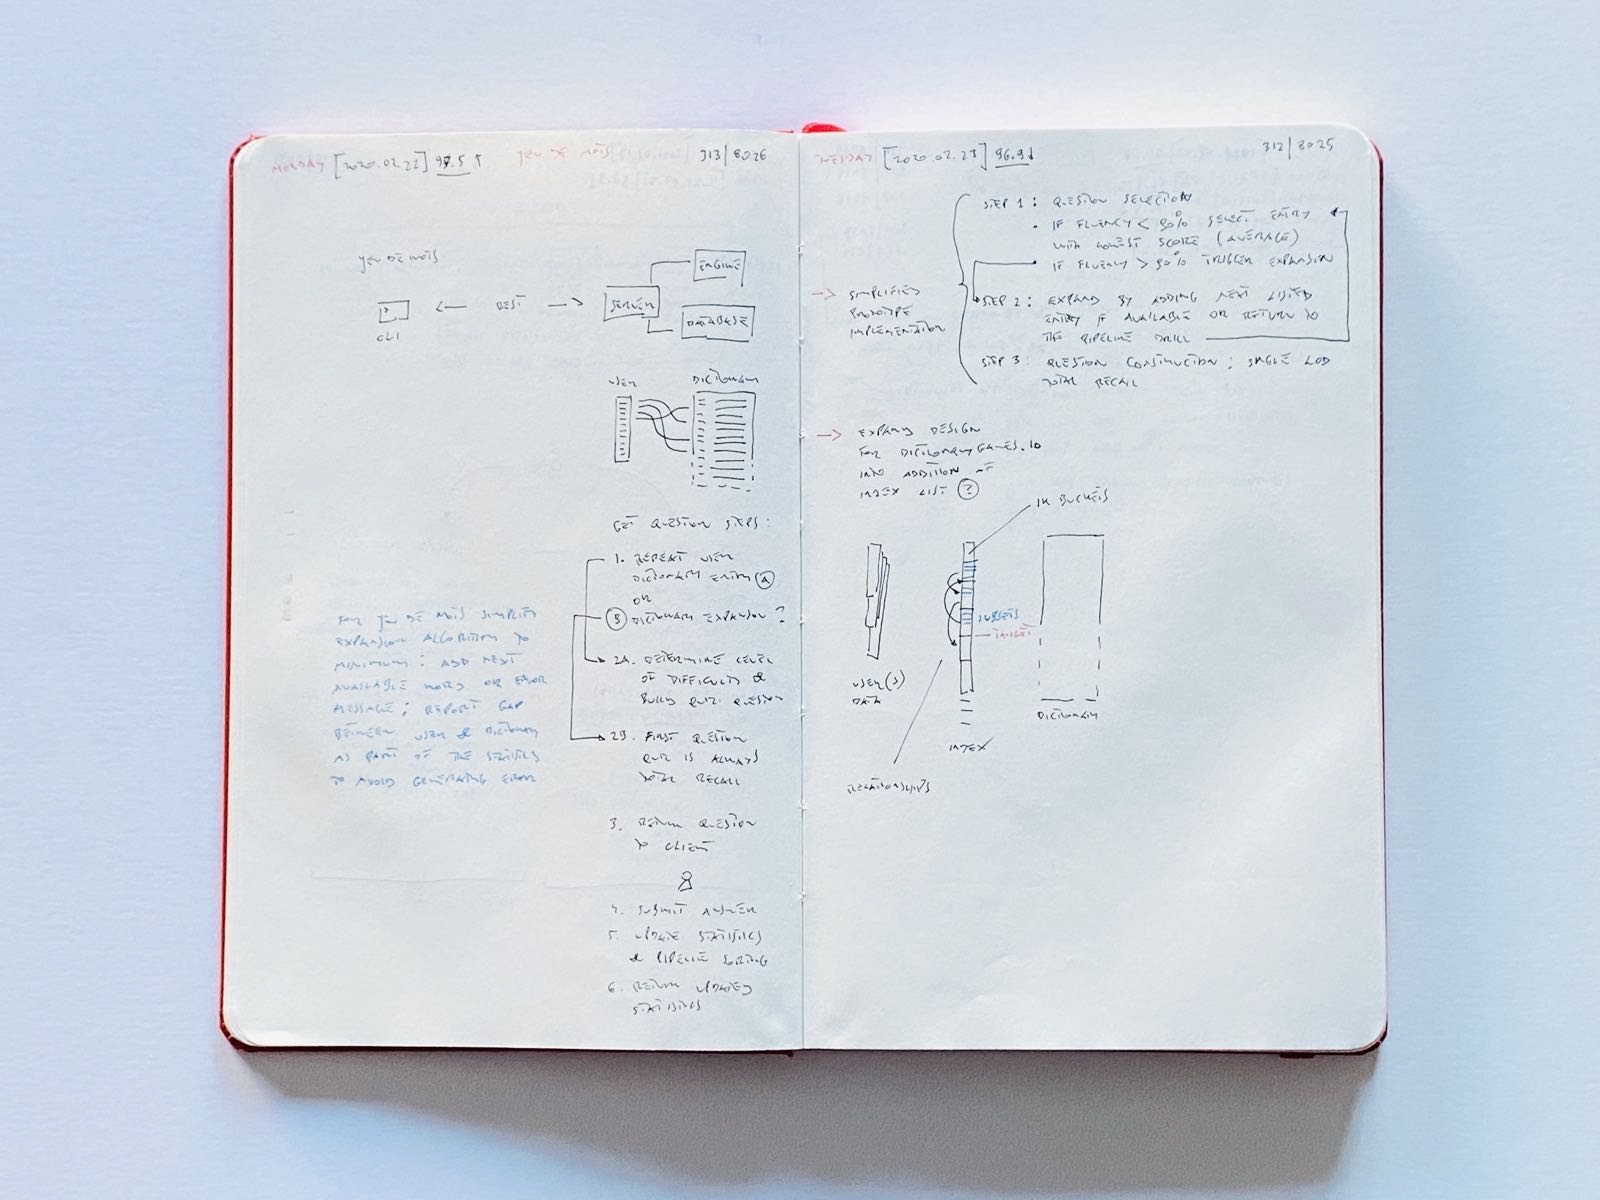 MONDAY [2020.02.22] 97.5 ↑
JEU DE MOTS
313|8026
JEU DE MOTS
CLI
← REST →
SERVER
ENGINE
DATABASE
USER
DICTIONARY
GET QUESTION STEPS:
1. REPEAT USER
DICTIONARY ENTRY (A)
OR
(B) DICTIONARY EXPANSION?
2A. DETERMINE LEVEL
OF DIFFICULTY &
BUILD QUIZ QUESTION
2B. FIRST QUESTION
QUIZ IS ALWAYS
TOTAL RECALL
3. RETURN QUESTION
TO CLIENT
4. SUBMIT ANSWER
5. UPDATE STATISTICS
& PIPELINE SORTING
6. RETURN UPDATED
STATISTICS
FOR JEU DE MOTS SIMPLIFY
EXPANSION ALGORITHM TO
MINIMUM: ADD NEXT
AVAILABLE WORD OR ERROR
MESSAGE; REPORT GAP
BETWEEN USER & DICTIONARY
AS PART OF THE STATISTICS
TO AVOID GENERATING ERROR
TUESDAY [2020.02.23] 96.9↓
312|8025
→ SIMPLIFIED
PROTOTYPE
IMPLEMENTATION
STEP 1: QUESTION SELECTION
• IF FLUENCY < 90% SELECT ENTRY
WITH LOWEST SCORE (AVERAGE)
• IF FLUENCY > 90% TRIGGER EXPANSION
STEP 2: EXPAND BY ADDING NEXT LISTED
ENTRY IF AVAILABLE OR RETURN TO
THE PIPELINE DRILL
STEP 3: QUESTION CONSTRUCTION; SINGLE LOD
TOTAL RECALL
→ EXPAND DESIGN
FOR DICTIONARYGAMES.IO
INTO ADDITION OF
INDEX LIST (?)
IN BUCKETS
SUBSETS
TARGET
USER(S)
DATA
INDEX
DICTIONARY
RELATIONSHIPS